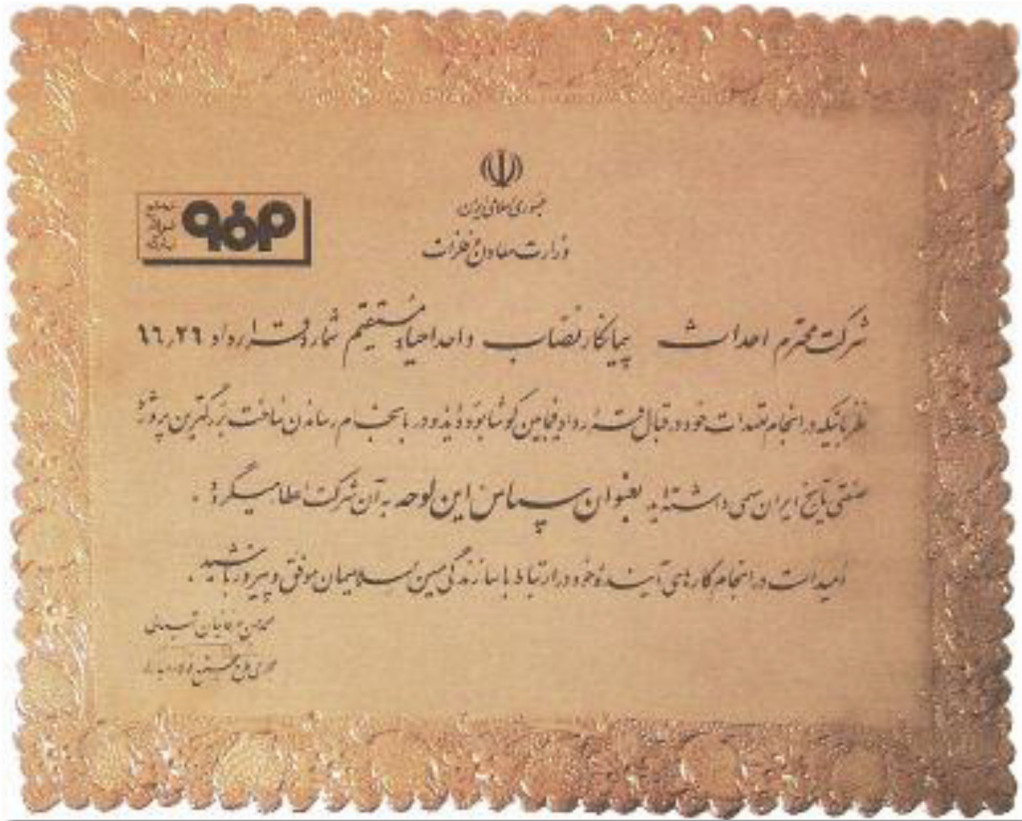 جمهوری اسلامی ایران
وزارت معادن و فلزات
شرکت محترم احداث پیمانکار نصاب واحد احیاء مستقیم شماره قرارداد ۶۶٫۲۶
نظر باینکه در انجام تعهدات خود در قبال قرارداد فیمابین کوشا بوده‌اید و در بانجام رساندن ساخت بزرگترین پروژه
صنعتی تاریخ ایران سعی داشته‌اید بعنوان سپاس این لوحه به آن شرکت اعطا میگردد.
امید است در انجام کارهای آینده خود در ارتباط با سازندگی میهن اسلامیمان موفق و پیروز باشید.
مجری طرح